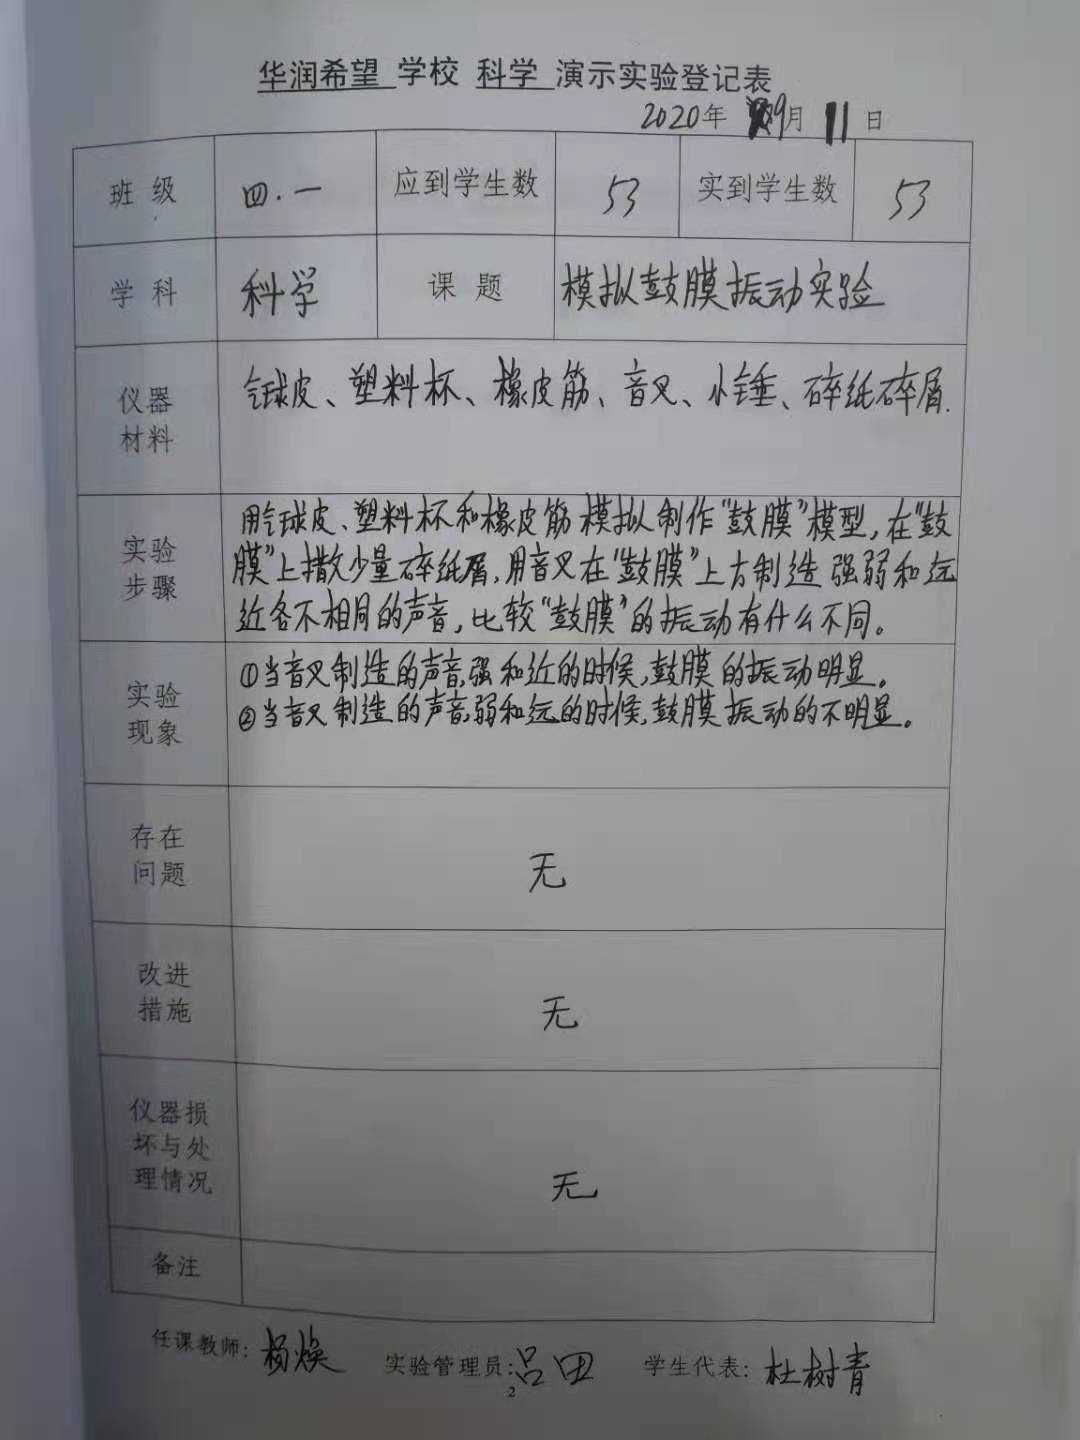 华润希望 学校 科学 演示实验登记表
2020年 9月 11日
班级 四.一 应到学生数 53 实到学生数 53
学科 科学 课题 模拟鼓膜振动实验
仪器
材料
气球皮、塑料杯、橡皮筋、音叉、小锤、碎纸碎屑.
实验
步骤
用气球皮、塑料杯和橡皮筋模拟制作“鼓膜”模型,在“鼓
膜”上撒少量碎纸屑,用音叉在“鼓膜”上方制造强弱和远
近各不相同的声音,比较“鼓膜”的振动有什么不同。
实验
现象
①当音叉制造的声音强和近的时候,鼓膜的振动明显。
②当音叉制造的声音弱和远的时候,鼓膜振动的不明显。
存在
问题
无
改进
措施
无
仪器损
坏与处
理情况
无
备注
任课教师:杨焕 实验管理员:吕田 学生代表:杜树青
2